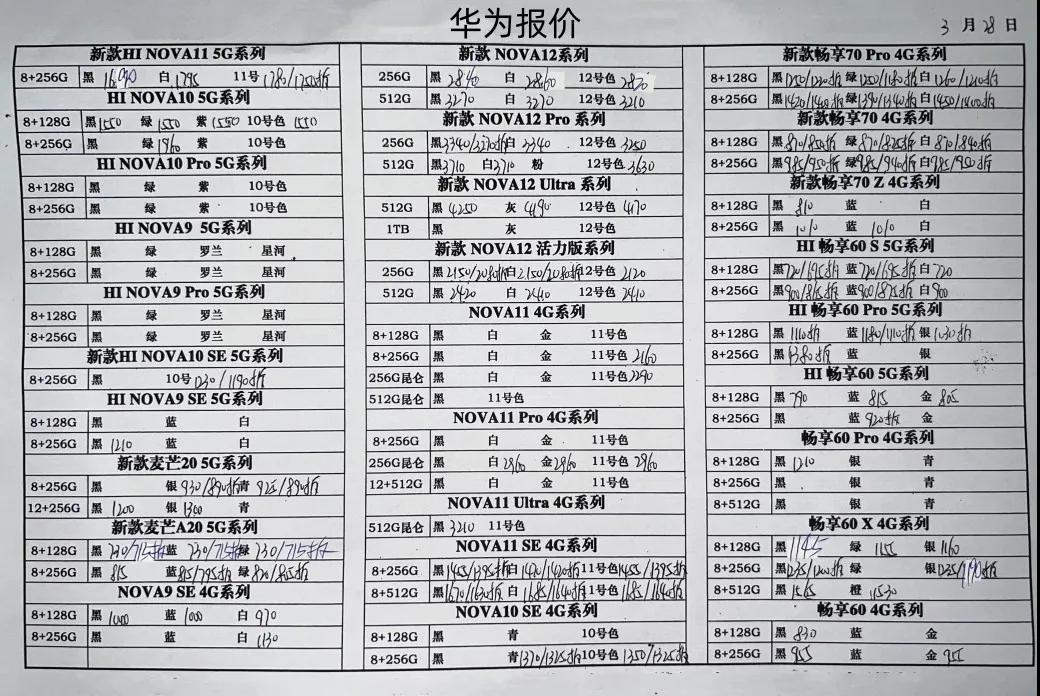 华为报价
3月28日
新款HI NOVA11 5G系列
8+256G 黑 白1795 11号1780/1750折
HI NOVA10 5G系列
8+128G 黑1550 绿1550 紫1550 10号色1550
8+256G 黑 绿1960 紫 10号色
HI NOVA10 Pro 5G系列
8+128G 黑 绿 紫 10号色
8+256G 黑 绿 紫 10号色
HI NOVA9 5G系列
8+128G 黑 绿 罗兰 星河
8+256G 黑 绿 罗兰 星河
HI NOVA9 Pro 5G系列
8+128G 黑 绿 罗兰 星河
8+256G 黑 绿 罗兰 星河
新款HI NOVA10 SE 5G系列
8+256G 黑 10号1230/1190折
HI NOVA9 SE 5G系列
8+128G 黑 蓝 白
8+256G 黑1210 蓝 白
新款麦芒20 5G系列
8+256G 黑 银930/890折 青925/890折
12+256G 黑1200 银1300 青
新款麦芒A20 5G系列
8+128G 黑730/715折 蓝730/715折 绿730/715折
8+256G 黑815 蓝815/795折 绿820/805折
NOVA9 SE 4G系列
8+128G 黑1000 蓝1000 白970
8+256G 黑 蓝 白1130
新款 NOVA12系列
256G 黑2840 白2860 12号色2820
512G 黑3270 白3270 12号色3210
新款 NOVA12 Pro 系列
256G 黑3340/3270折 白3340 12号色3250
512G 黑3710 白3710 粉 12号色3630
新款 NOVA12 Ultra 系列
512G 黑4250 灰4190 12号色4170
1TB 黑 灰 12号色
新款 NOVA12 活力版系列
256G 黑2150/2080折 白2150/2080折 12号色2120
512G 黑2420 白2410 12号色2410
NOVA11 4G系列
8+128G 黑 白 金 11号色
8+256G 黑 白 金 11号色2160
256G昆仑 黑 白 金 11号色2290
512G昆仑 黑 11号色
NOVA11 Pro 4G系列
8+256G 黑 白 金 11号色
256G昆仑 黑 白2960 金2960 11号色2960
12+512G 黑 白 金 11号色
NOVA11 Ultra 4G系列
512G昆仑 黑3210 11号色
NOVA11 SE 4G系列
8+256G 黑1455/1395折 白1470/1420折 11号色1455/1395折
8+512G 黑1670/1630折 白1685/1640折 11号色1685/1640折
NOVA10 SE 4G系列
8+128G 黑 青 10号色
8+256G 黑 青1370/1325折 10号色1350/1325折
新款畅享70 Pro 4G系列
8+128G 黑1250/1220折 绿1250/1180折 白1260/1210折
8+256G 黑1420/1400折 绿1390/1340折 白1450/1400折
新款畅享70 4G系列
8+128G 黑870/850折 绿870/825折 白870/840折
8+256G 黑985/950折 绿985/940折 白985/950折
新款畅享70 Z 4G系列
8+128G 黑810 蓝 白
8+256G 黑1010 蓝1010 白
HI 畅享60 S 5G系列
8+128G 黑720/695折 蓝720/695折 白720
8+256G 黑900/875折 蓝900/875折 白900
HI 畅享60 Pro 5G系列
8+128G 黑1110折 蓝1180/1110折 银1030折
8+256G 黑1380折 蓝 银
HI 畅享60 5G系列
8+128G 黑790 蓝815 金805
8+256G 黑 蓝920折 金
畅享60 Pro 4G系列
8+128G 黑1210 银 青
8+256G 黑 银 青
8+512G 黑 银 青
畅享60 X 4G系列
8+128G 黑1145 绿1155 银1160
8+256G 黑1235/1200折 绿 银1235/1190折
8+512G 黑1565 橙1530
畅享60 4G系列
8+128G 黑830 蓝 金
8+256G 黑955 蓝 金955